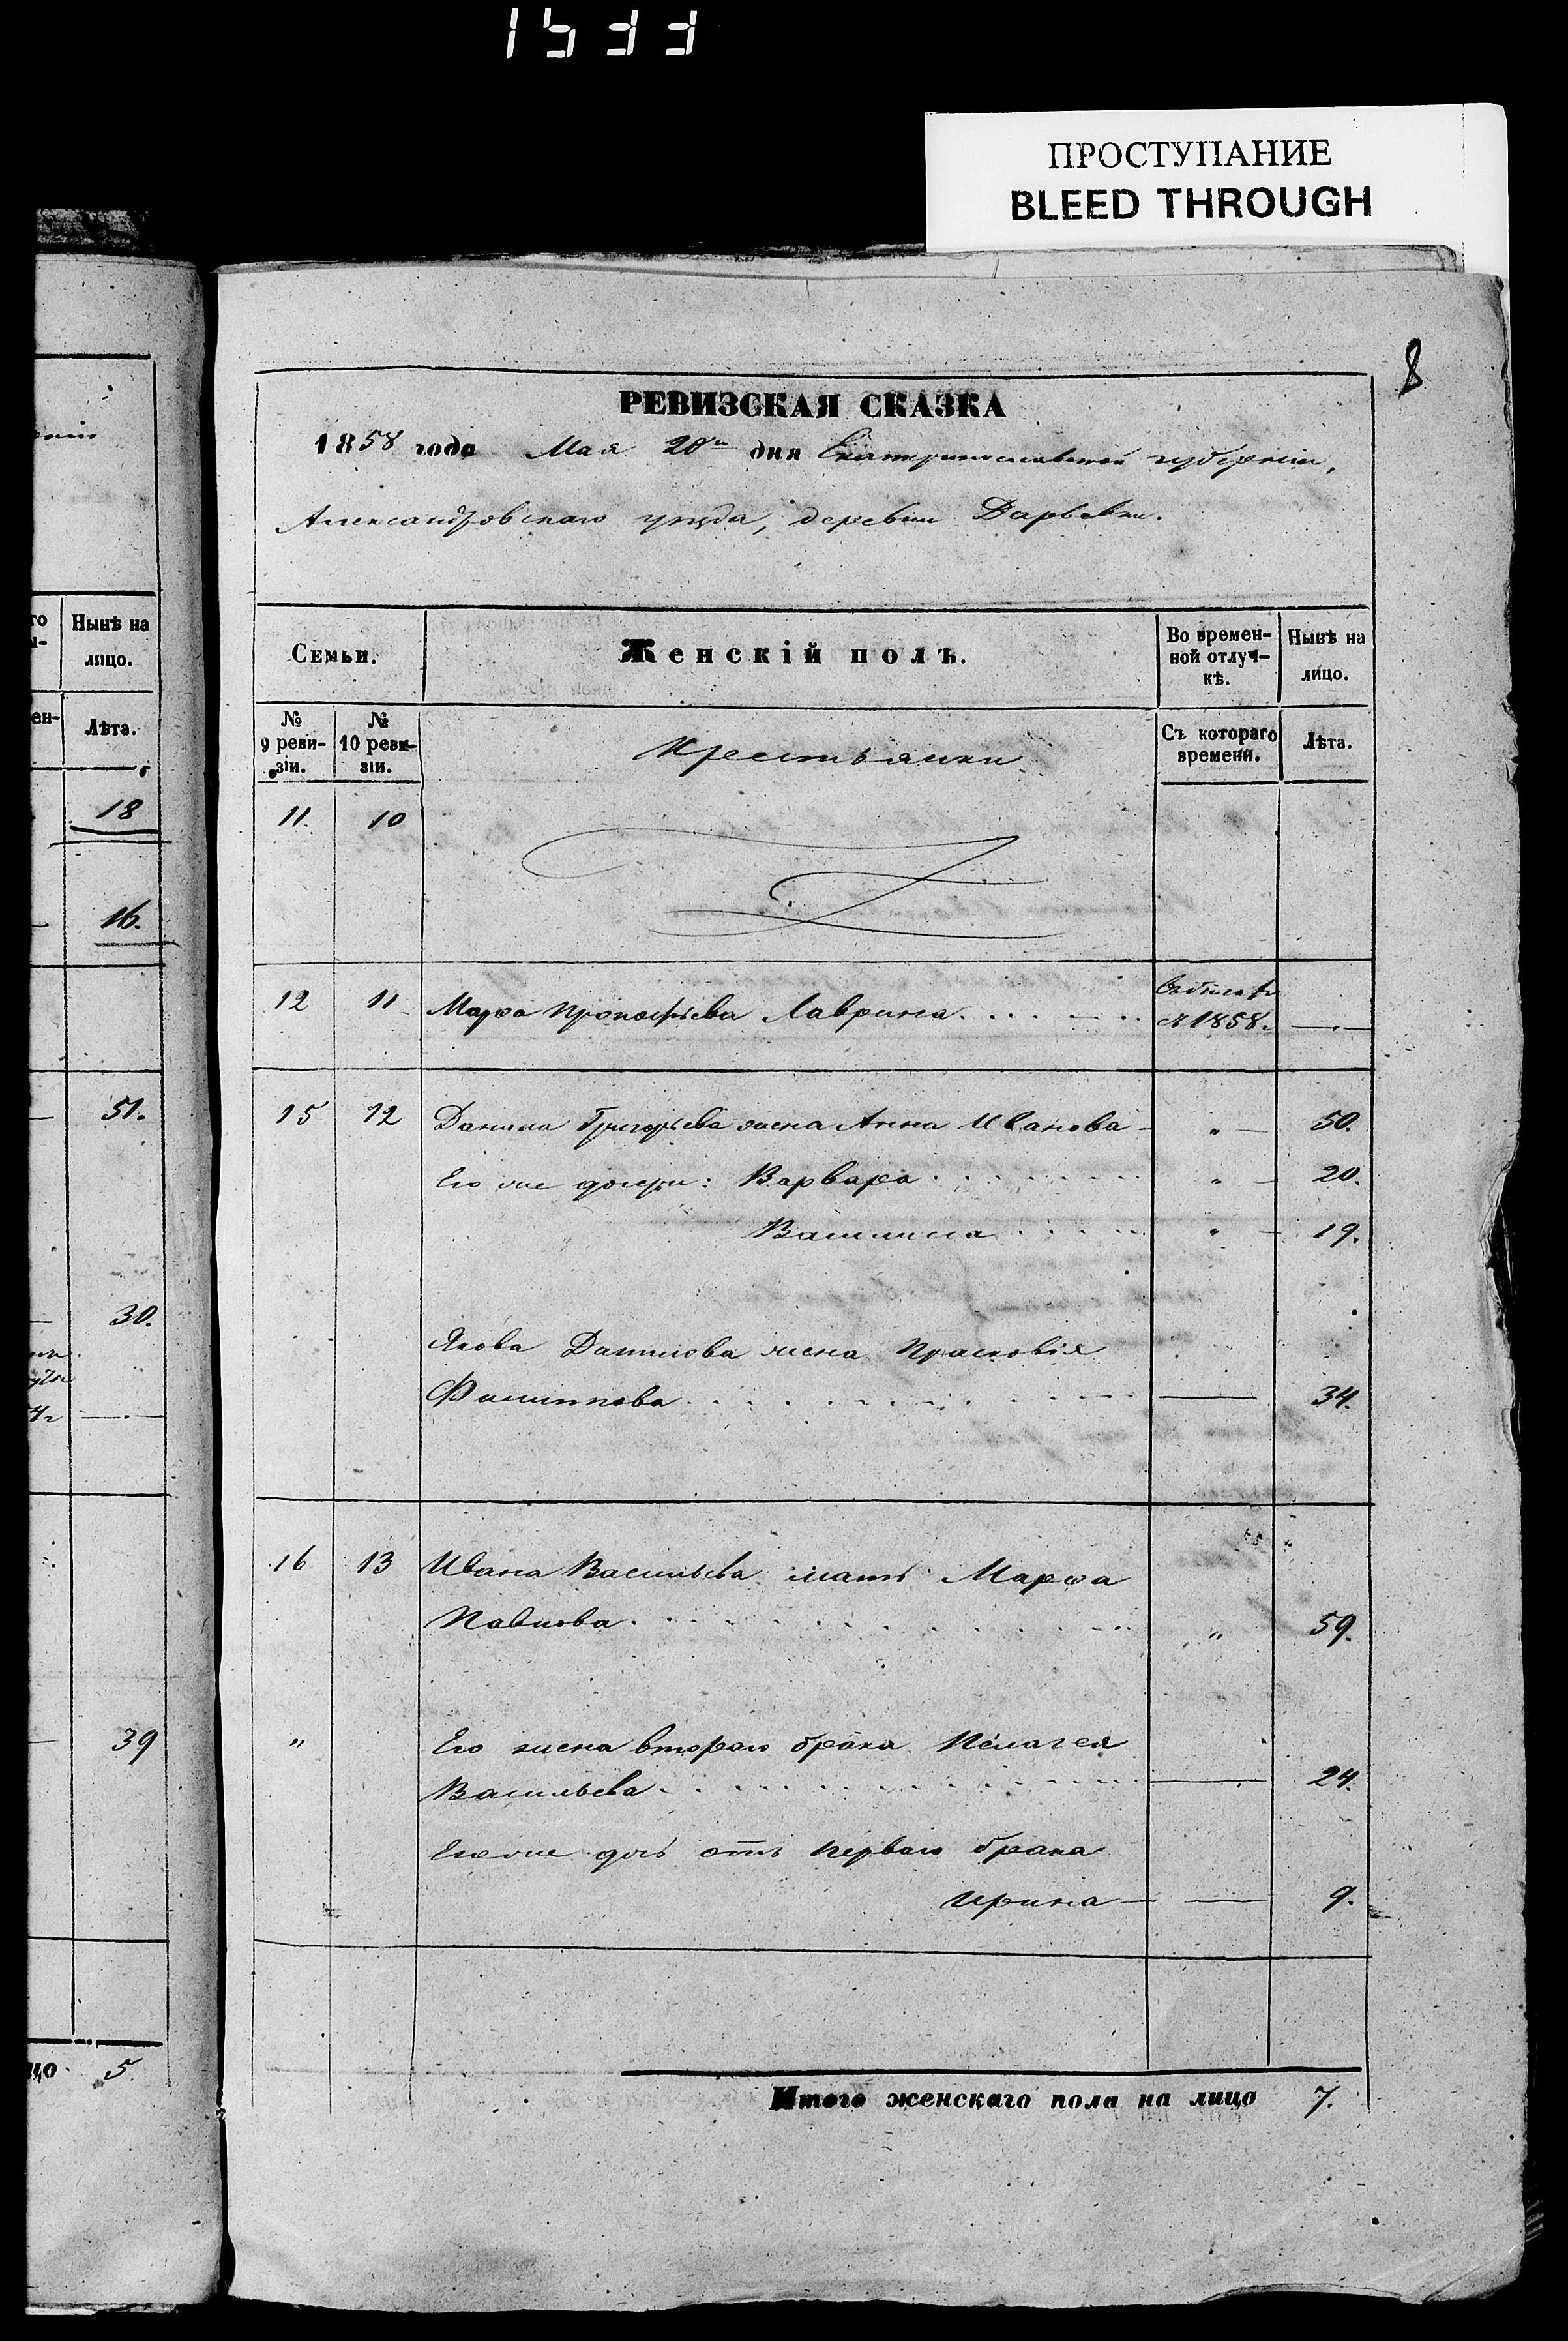 1533
ПРОСТУПАНИЕ
BLEED THROUGH
8
РЕВИЗСКАЯ СКАЗКА
1858 года Мая 20го дня Екатеринославской губерніи,
Александровскаго уѣзда, деревни Дарьевки.
го Нынѣ на
лицо.
ен- Лѣта.
18
16.
51.
30.
39
цо 5.
Семьи. Женскій полъ. Во времен-ной отлуч-кѣ. Нынѣ на лицо.
№ 9 реви-зіи. № 10 реви-зіи. Крестьянки Съ котораго времени. Лѣта.
11. 10
12 11 Марфа Прокофьева Лаврина . . . съ 1858. —
15 12 Данила Григорьева жена Анна Иванова — " — 50.
Его же дочери: Варвара . . . " — 20.
Василиса . . . " — 19.
Якова Данилова жена Прасковія
Филиппова . . . — 34.
16 13 Ивана Васильева мать Марфа
Павлова . . . " 59.
" Его жена втораго брака Пелагея
Васильева . . . — 24.
Его же дочь отъ перваго брака
Ирина — — 9.
Итого женскаго пола на лицо 7.